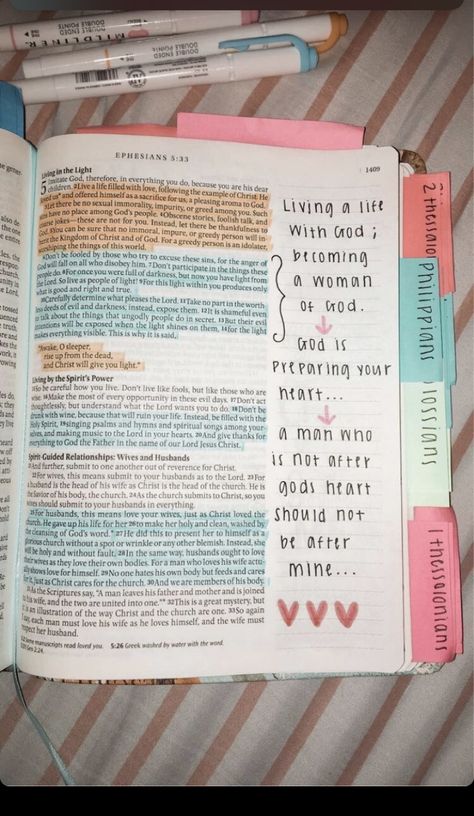 MILDLINER
DOUBLE ENDED
DOUBLE POINTS
DOUBLE ENDED
DOUBLE POINTS
EPHESIANS 5:33
1409
Living in the Light
5 Imitate God, therefore, in everything you do, because you are his dear
children. 2Live a life filled with love, following the example of Christ. He
loved us* and offered himself as a sacrifice for us, a pleasing aroma to God.
3Let there be no sexual immorality, impurity, or greed among you. Such
sins have no place among God's people. 4Obscene stories, foolish talk, and
coarse jokes—these are not for you. Instead, let there be thankfulness to
God. 5You can be sure that no immoral, impure, or greedy person will in-
herit the Kingdom of Christ and of God. For a greedy person is an idolater,
worshiping the things of this world.
6Don't be fooled by those who try to excuse these sins, for the anger of
God will fall on all who disobey him. 7Don't participate in the things these
people do. 8For once you were full of darkness, but now you have light from
the Lord. So live as people of light! 9For this light within you produces only
what is good and right and true.
10Carefully determine what pleases the Lord. 11Take no part in the worth-
less deeds of evil and darkness; instead, expose them. 12It is shameful even
to talk about the things that ungodly people do in secret. 13But their evil
intentions will be exposed when the light shines on them, 14for the light
makes everything visible. This is why it is said,
"Awake, O sleeper,
rise up from the dead,
and Christ will give you light."
Living by the Spirit's Power
15So be careful how you live. Don't live like fools, but like those who are
wise. 16Make the most of every opportunity in these evil days. 17Don't act
thoughtlessly, but understand what the Lord wants you to do. 18Don't be
drunk with wine, because that will ruin your life. Instead, be filled with the
Holy Spirit, 19singing psalms and hymns and spiritual songs among your-
selves, and making music to the Lord in your hearts. 20And give thanks for
everything to God the Father in the name of our Lord Jesus Christ.
Spirit-Guided Relationships: Wives and Husbands
21And further, submit to one another out of reverence for Christ.
22For wives, this means submit to your husbands as to the Lord. 23For
a husband is the head of his wife as Christ is the head of the church. He is
the Savior of his body, the church. 24As the church submits to Christ, so you
wives should submit to your husbands in everything.
25For husbands, this means love your wives, just as Christ loved the
church. He gave up his life for her 26to make her holy and clean, washed by
the cleansing of God's word.* 27He did this to present her to himself as a
glorious church without a spot or wrinkle or any other blemish. Instead, she
will be holy and without fault. 28In the same way, husbands ought to love
their wives as they love their own bodies. For a man who loves his wife actu-
ally shows love for himself. 29No one hates his own body but feeds and cares
for it, just as Christ cares for the church. 30And we are members of his body.
31As the Scriptures say, "A man leaves his father and mother and is joined
to his wife, and the two are united into one."* 32This is a great mystery, but
it is an illustration of the way Christ and the church are one. 33So again
I say, each man must love his wife as he loves himself, and the wife must
respect her husband.
some manuscripts read loved you. 5:26 Greek washed by water with the word.
Gen 2:24.
Living a life
with God;
becoming
a woman
of God.
God is
Preparing your
heart...
a man who
is not after
gods heart
should not
be after
mine...
2 thessalo
Philippians
lossians
1 thessalonians